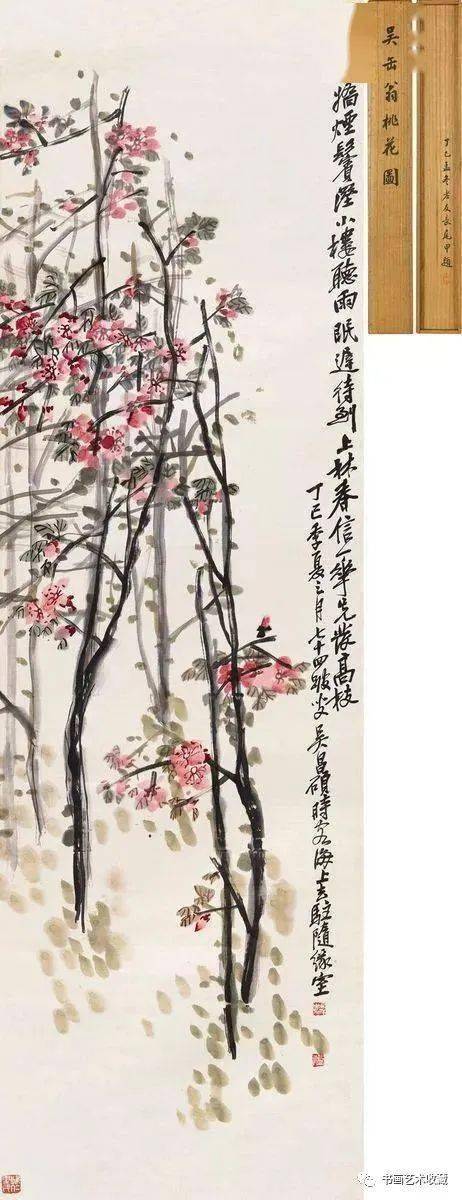 丁巳孟冬老友長尾甲題
吴缶翁桃花圖
煙鬢溼小樓聽雨眠遲待到上林春信一華先發高枝
丁巳季夏之月七十四叟吳昌碩時客海上去駐隨緣室
书画艺术收藏